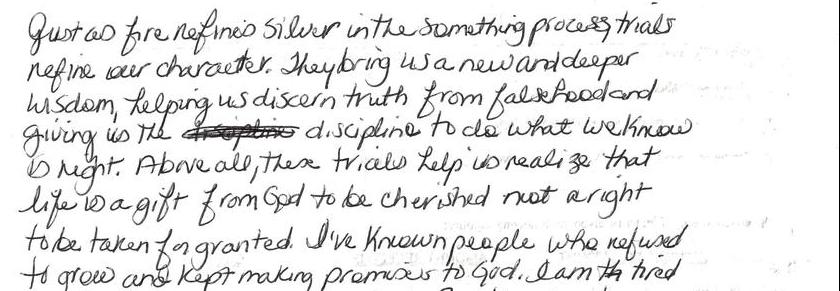 Just as fire refines silver in the something process trials
refine our character. They bring us a new and deeper
wisdom, helping us discern truth from falsehood and
giving us the discipline to do what we know
is right. Above all, these trials help us realize that
life is a gift from God to be cherished not a right
to be taken for granted. I've known people who refused
to grow and kept making promises to God. I am tired